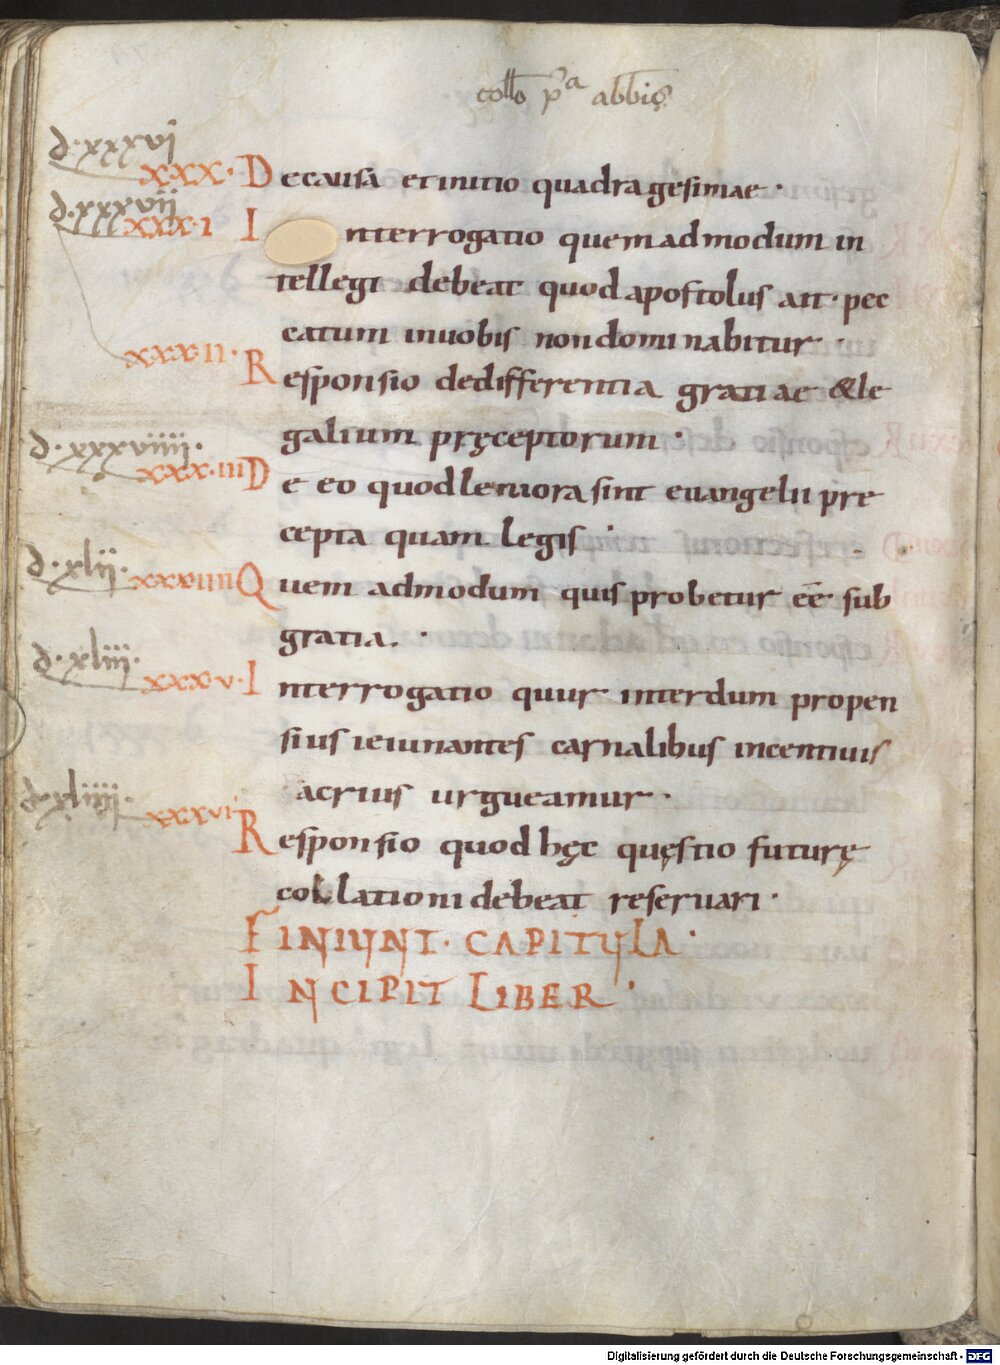 collō p^a abbīs
d·xxxvi
xxx· De causa et initio quadragesimae·
d·xxxvii
xxx·i Interrogatio quemadmodum in
tellegi debeat quod apostolus ait· pec
catum in uobis non dominabitur·
xxxii· Responsio de differentia gratiae & le
galium pręceptorum·
d·xxxviiii·
xxx·iii De eo quod leniora sint euangelii pre
cepta quam legis·
d·xlii·
xxxiiii Quem admodum quis probetur eē sub
gratia.·
d·xliii·
xxxv· Interrogatio quur interdum propen
sius ieiunantes carnalibus incentiuis
acrius urgueamur·
d·xliiii·
xxxvi Responsio quod hęc quęstio futurę
collationi debeat reseruari·
FINIUNT· CAPITULA·
INCIPIT LIBER·
Digitalisierung gefördert durch die Deutsche Forschungsgemeinschaft - DFG